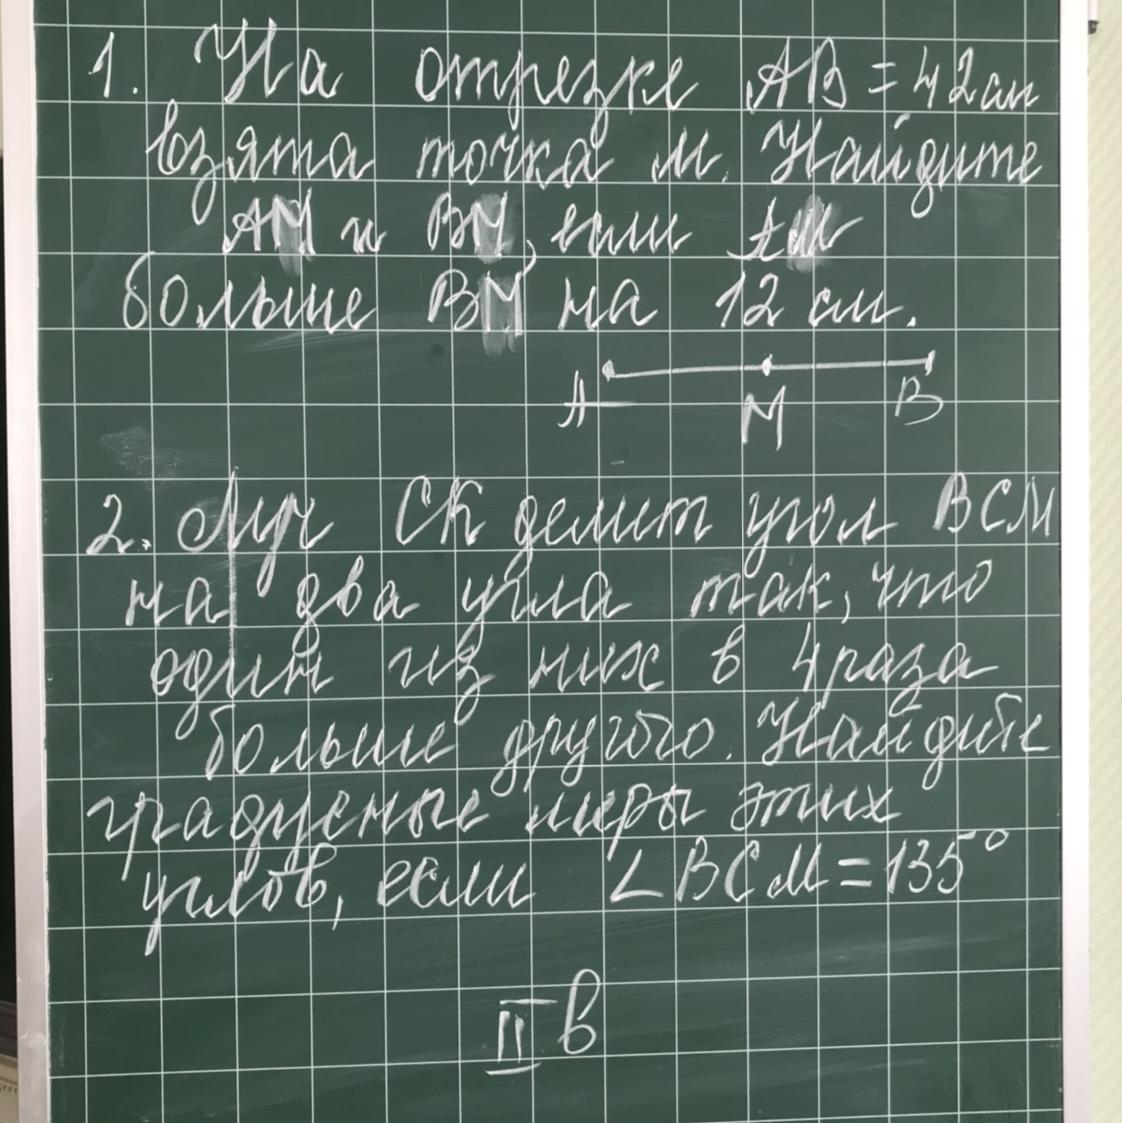 1. На отрезке AB = 42 см
взята точка M. Найдите
AM и BM, если AM
больше BM на 12 см.
A M B
2. Луч CK делит угол BCM
на два угла так, что
один из них в 4 раза
больше другого. Найдите
градусные меры этих
углов, если ∠BCM = 135°
II в